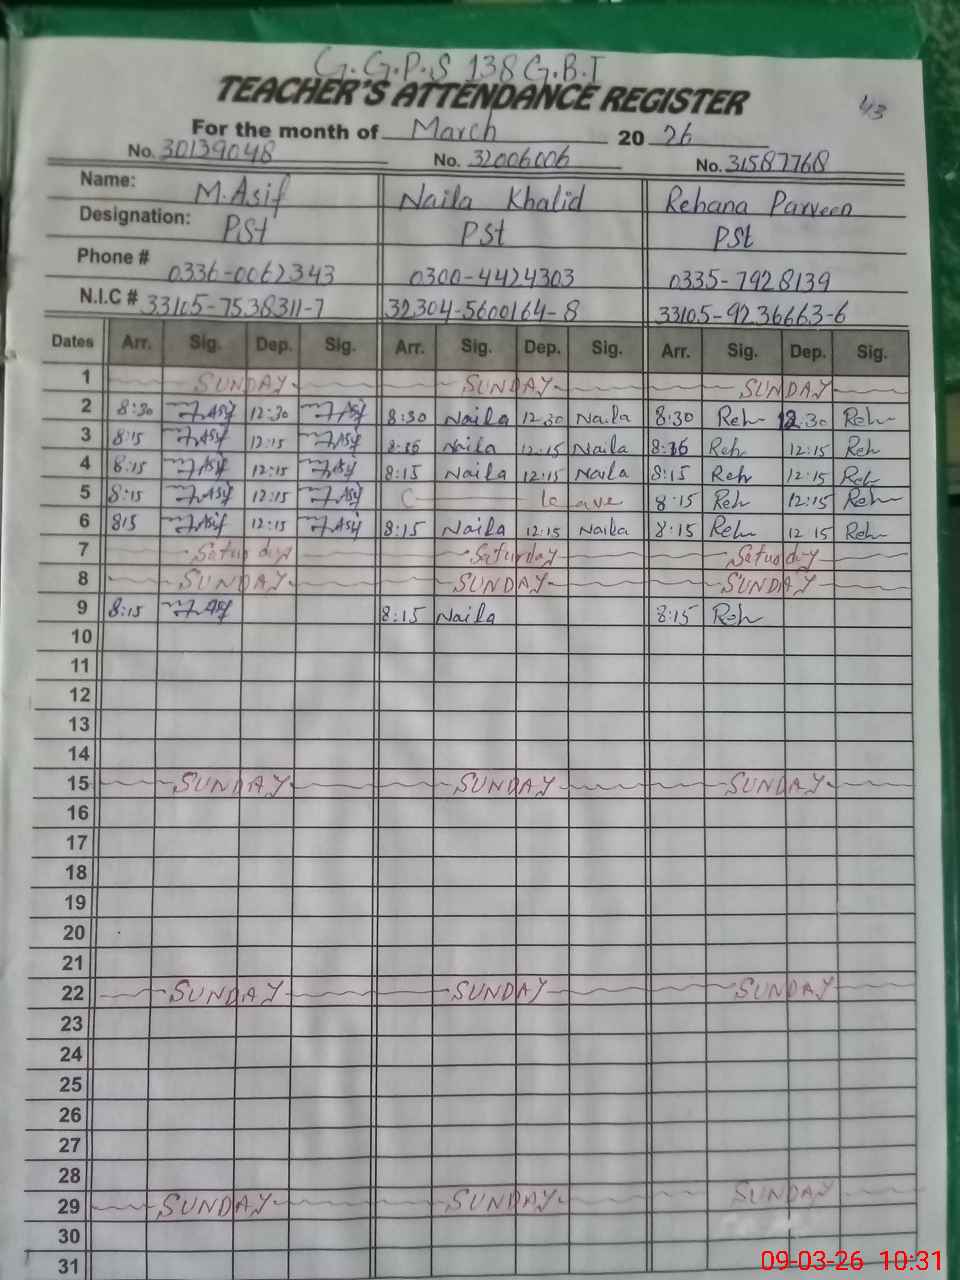 G.G.P.S 138 G.B.I
TEACHER'S ATTENDANCE REGISTER
43
For the month of March 20 26
No. 30139048 No. 32006006 No. 31587768
Name: M.Asif Naila Khalid Rehana Parveen
Designation: PSt PSt PSt
Phone # 0336-0062343 0300-4424303 0335-7928139
N.I.C # 33105-7538311-7 32304-5600164-8 33105-9236663-6
Dates Arr. Sig. Dep. Sig. Arr. Sig. Dep. Sig. Arr. Sig. Dep. Sig.
1 SUNDAY SUNDAY SUNDAY
2 8:30 Asif 12:30 Asif 8:30 Naila 12:30 Naila 8:30 Reh 12:30 Reh
3 8:15 Asif 12:15 Asif Naila 12:15 Naila Reh 12:15 Reh
4 8:15 Asif 12:15 Asif 8:15 Naila 12:15 Naila 8:15 Reh 12:15 Reh
5 8:15 Asif 12:15 Asif C leave 8:15 Reh 12:15 Reh
6 815 Asif 12:15 Asif 8:15 Naila 12:15 Naila 8:15 Reh 12:15 Reh
7 Saturday Saturday Saturday
8 SUNDAY SUNDAY SUNDAY
9 8:15 Asif 8:15 Naila 8:15 Reh
10
11
12
13
14
15 SUNDAY SUNDAY SUNDAY
16
17
18
19
20
21
22 SUNDAY SUNDAY SUNDAY
23
24
25
26
27
28
29 SUNDAY SUNDAY SUNDAY
30
31
09-03-26 10:31